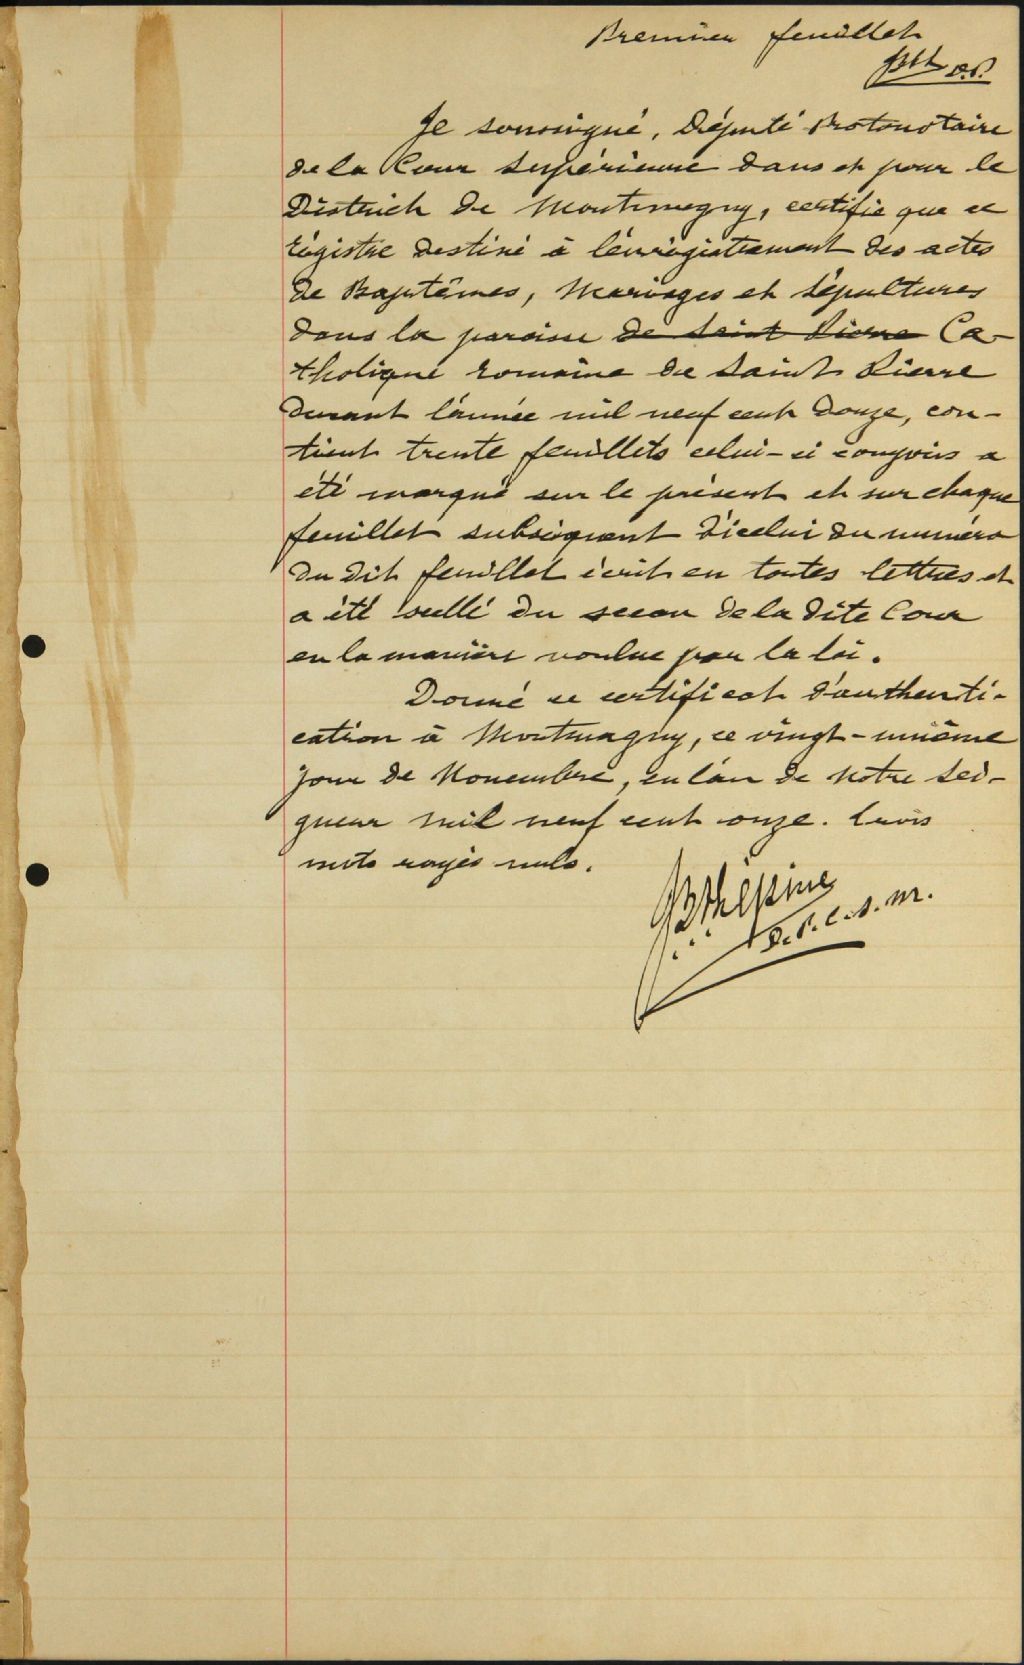 Premier feuillet
D.P.
Je soussigné, Député Protonotaire
de la Cour Supérieure dans et pour le
District de Montmagny, certifie que ce
régistre destiné à l'enrégistrement des actes
de Baptêmes, Mariages et Sépultures
dans la paroisse de Saint Pierre Ca-
tholique romaine de Saint Pierre
durant l'année mil neuf cent douze, con-
tient trente feuillets celui-ci compris a
été marqué sur le présent et sur chaque
feuillet subséquent d'icelui du numéro
du dit feuillet écrit en toutes lettres et
a été scellé du sceau de la dite Cour
en la manière voulue par la loi.
Donné ce certificat d'authenti-
cation à Montmagny, ce vingt-unième
jour de Novembre, en l'an de Notre Sei-
gneur mil neuf cent onze. Trois
mots rayés nuls.
Lépine
D.P.C.S.M.